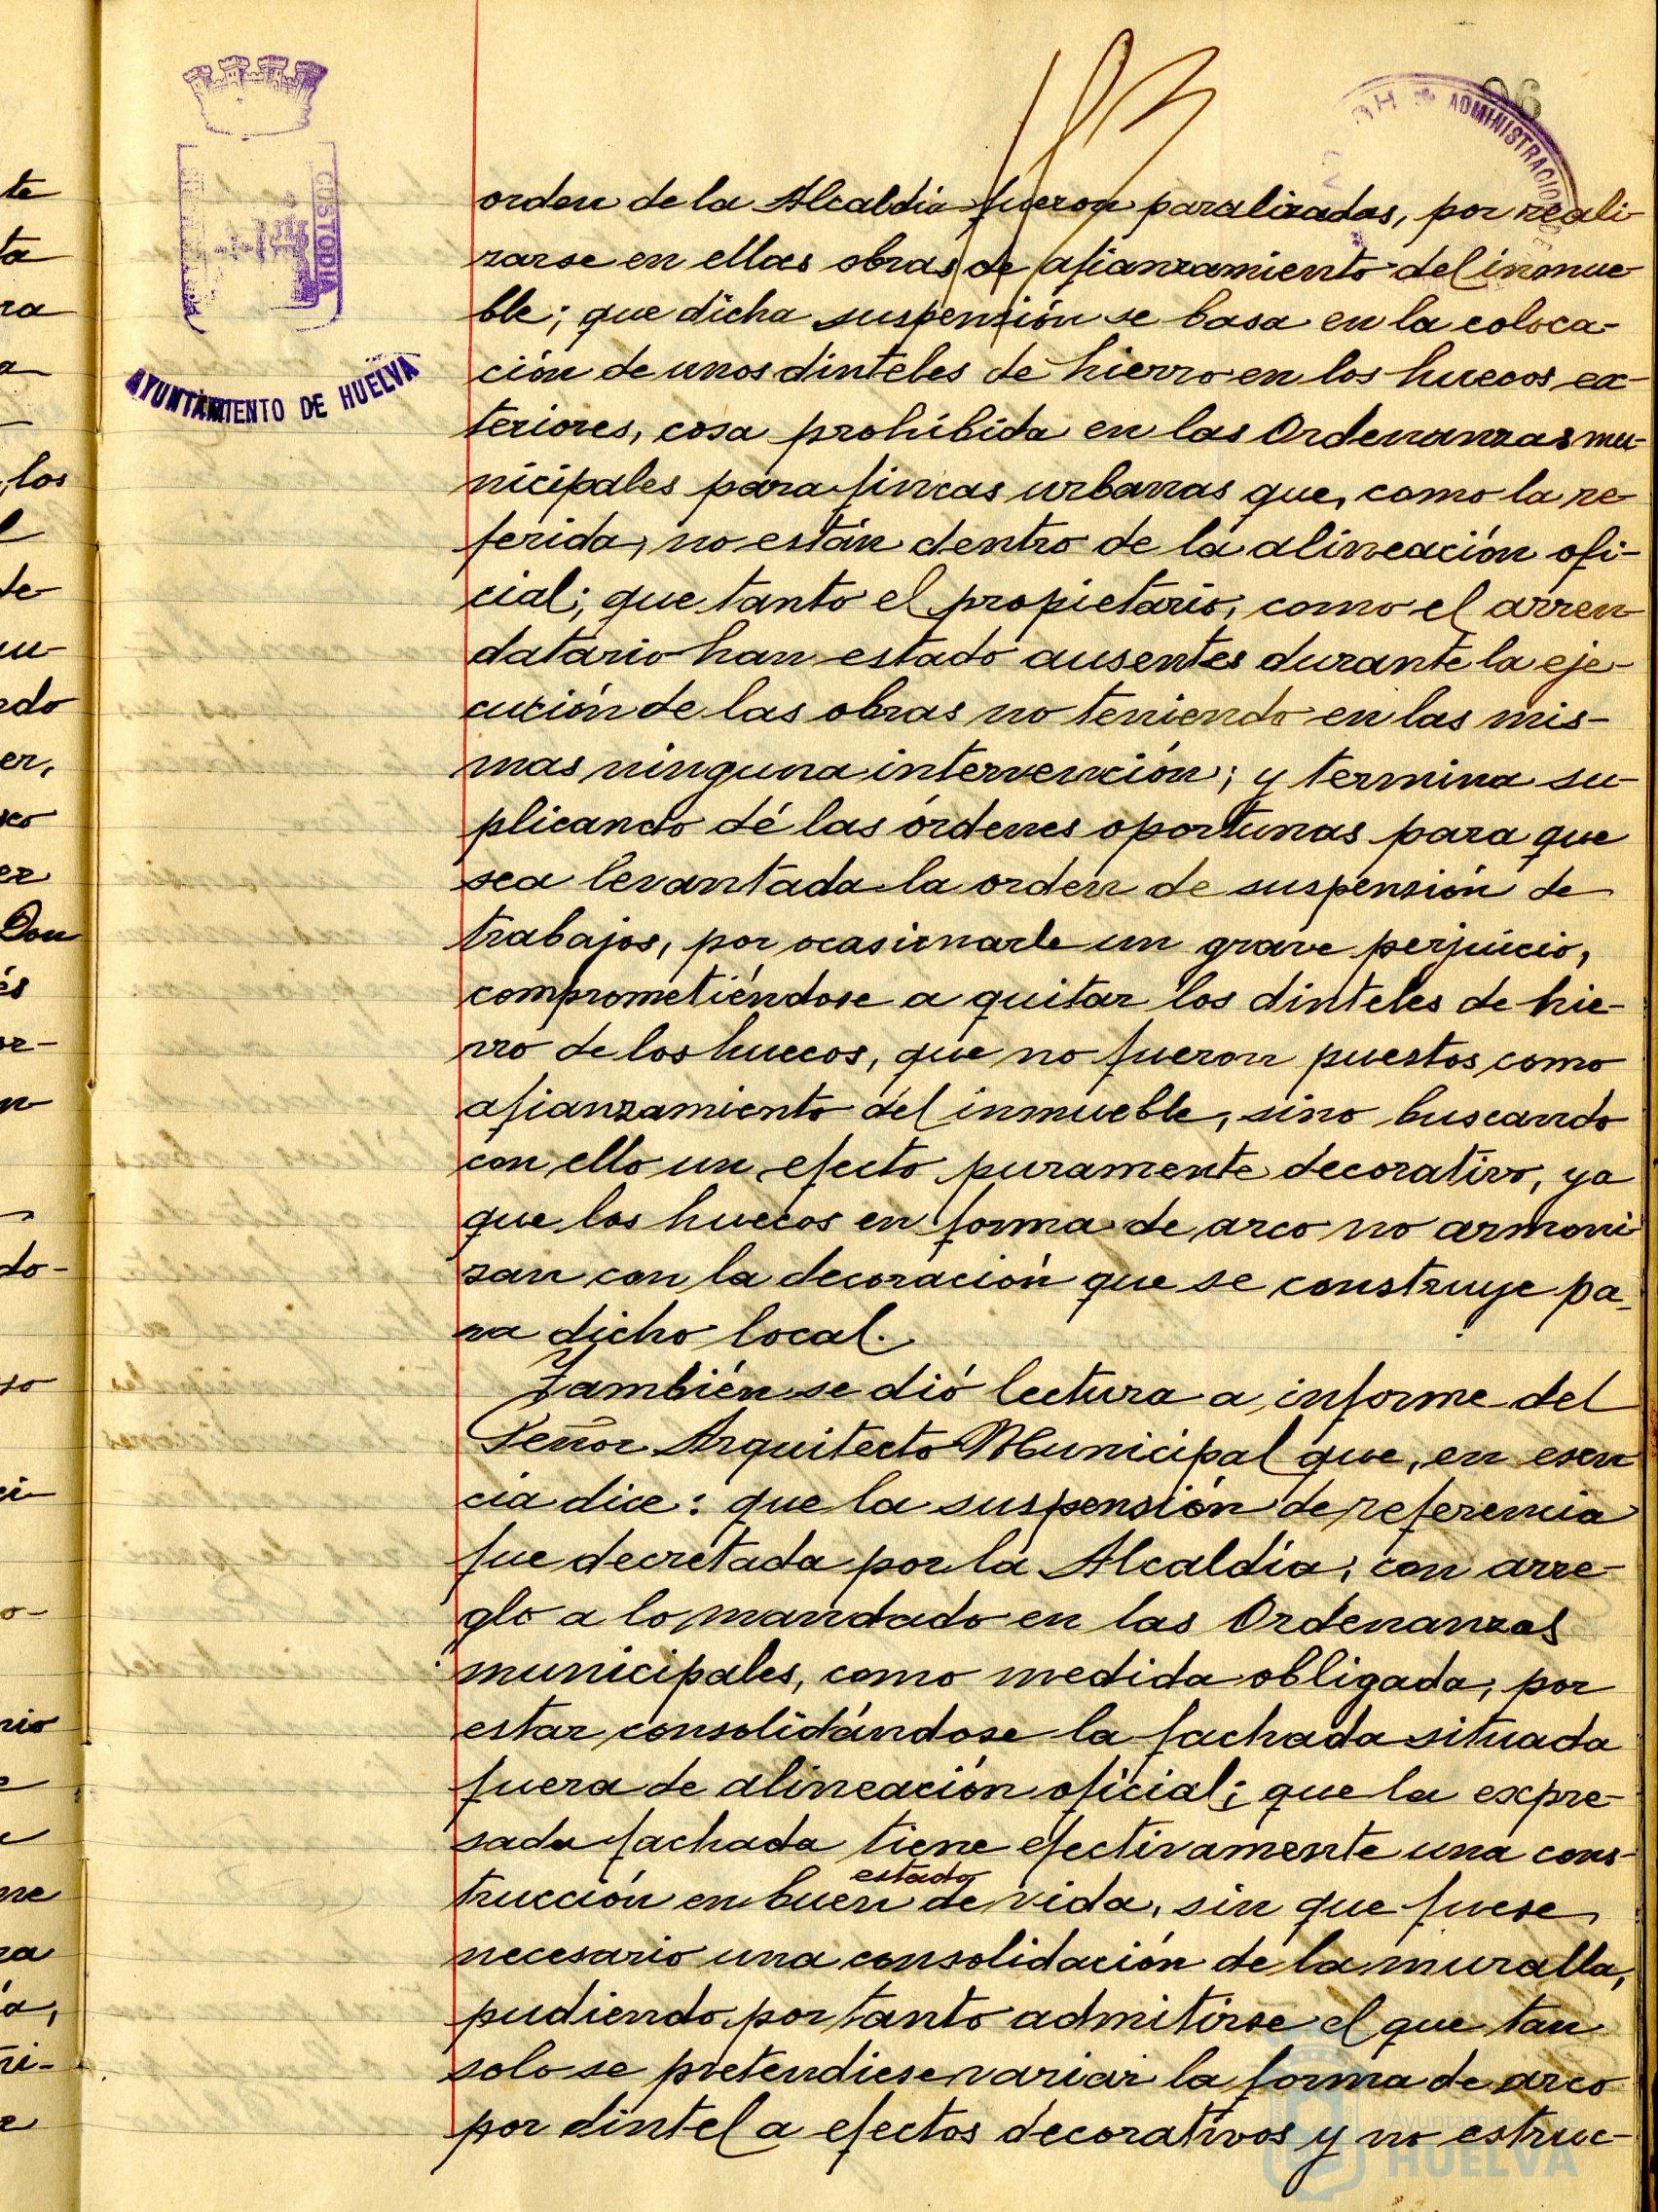 96
ADMINISTRACION DE
CUSTODIA
AYUNTAMIENTO DE HUELVA
orden de la Alcaldía fueron paralizadas, por reali-
zarse en ellas obras de afianzamiento del inmue-
ble; que dicha suspensión se basa en la coloca-
ción de unos dinteles de hierro en los huecos ex-
teriores, cosa prohibida en las Ordenanzas mu-
nicipales para fincas urbanas que, como la re-
ferida, no están dentro de la alineación ofi-
cial; que tanto el propietario, como el arren-
datario han estado ausentes durante la eje-
cución de las obras no teniendo en las mis-
mas ninguna intervención; y termina su-
plicando dé las órdenes oportunas para que
sea levantada la orden de suspensión de
trabajos, por ocasionarle un grave perjuicio,
comprometiéndose a quitar los dinteles de hie-
rro de los huecos, que no fueron puestos como
afianzamiento del inmueble, sino buscando
con ello un efecto puramente decorativo, ya
que los huecos en forma de arco no armoni
zan con la decoración que se construye pa-
ra dicho local.
También se dió lectura a informe del
Señor Arquitecto Municipal que, en esen
cia dice: que la suspensión de referencia
fue decretada por la Alcaldía, con arre-
glo a lo mandado en las Ordenanzas
municipales, como medida obligada, por
estar consolidándose la fachada situada
fuera de alineación oficial; que la expre-
sada fachada tiene efectivamente una cons-
trucción en buen estado de vida, sin que fuese
necesario una consolidación de la muralla,
pudiendo por tanto admitirse el que tan
solo se pretendiese variar la forma de arco
por dintel a efectos decorativos y no estruc-
Ayuntamiento de
HUELVA